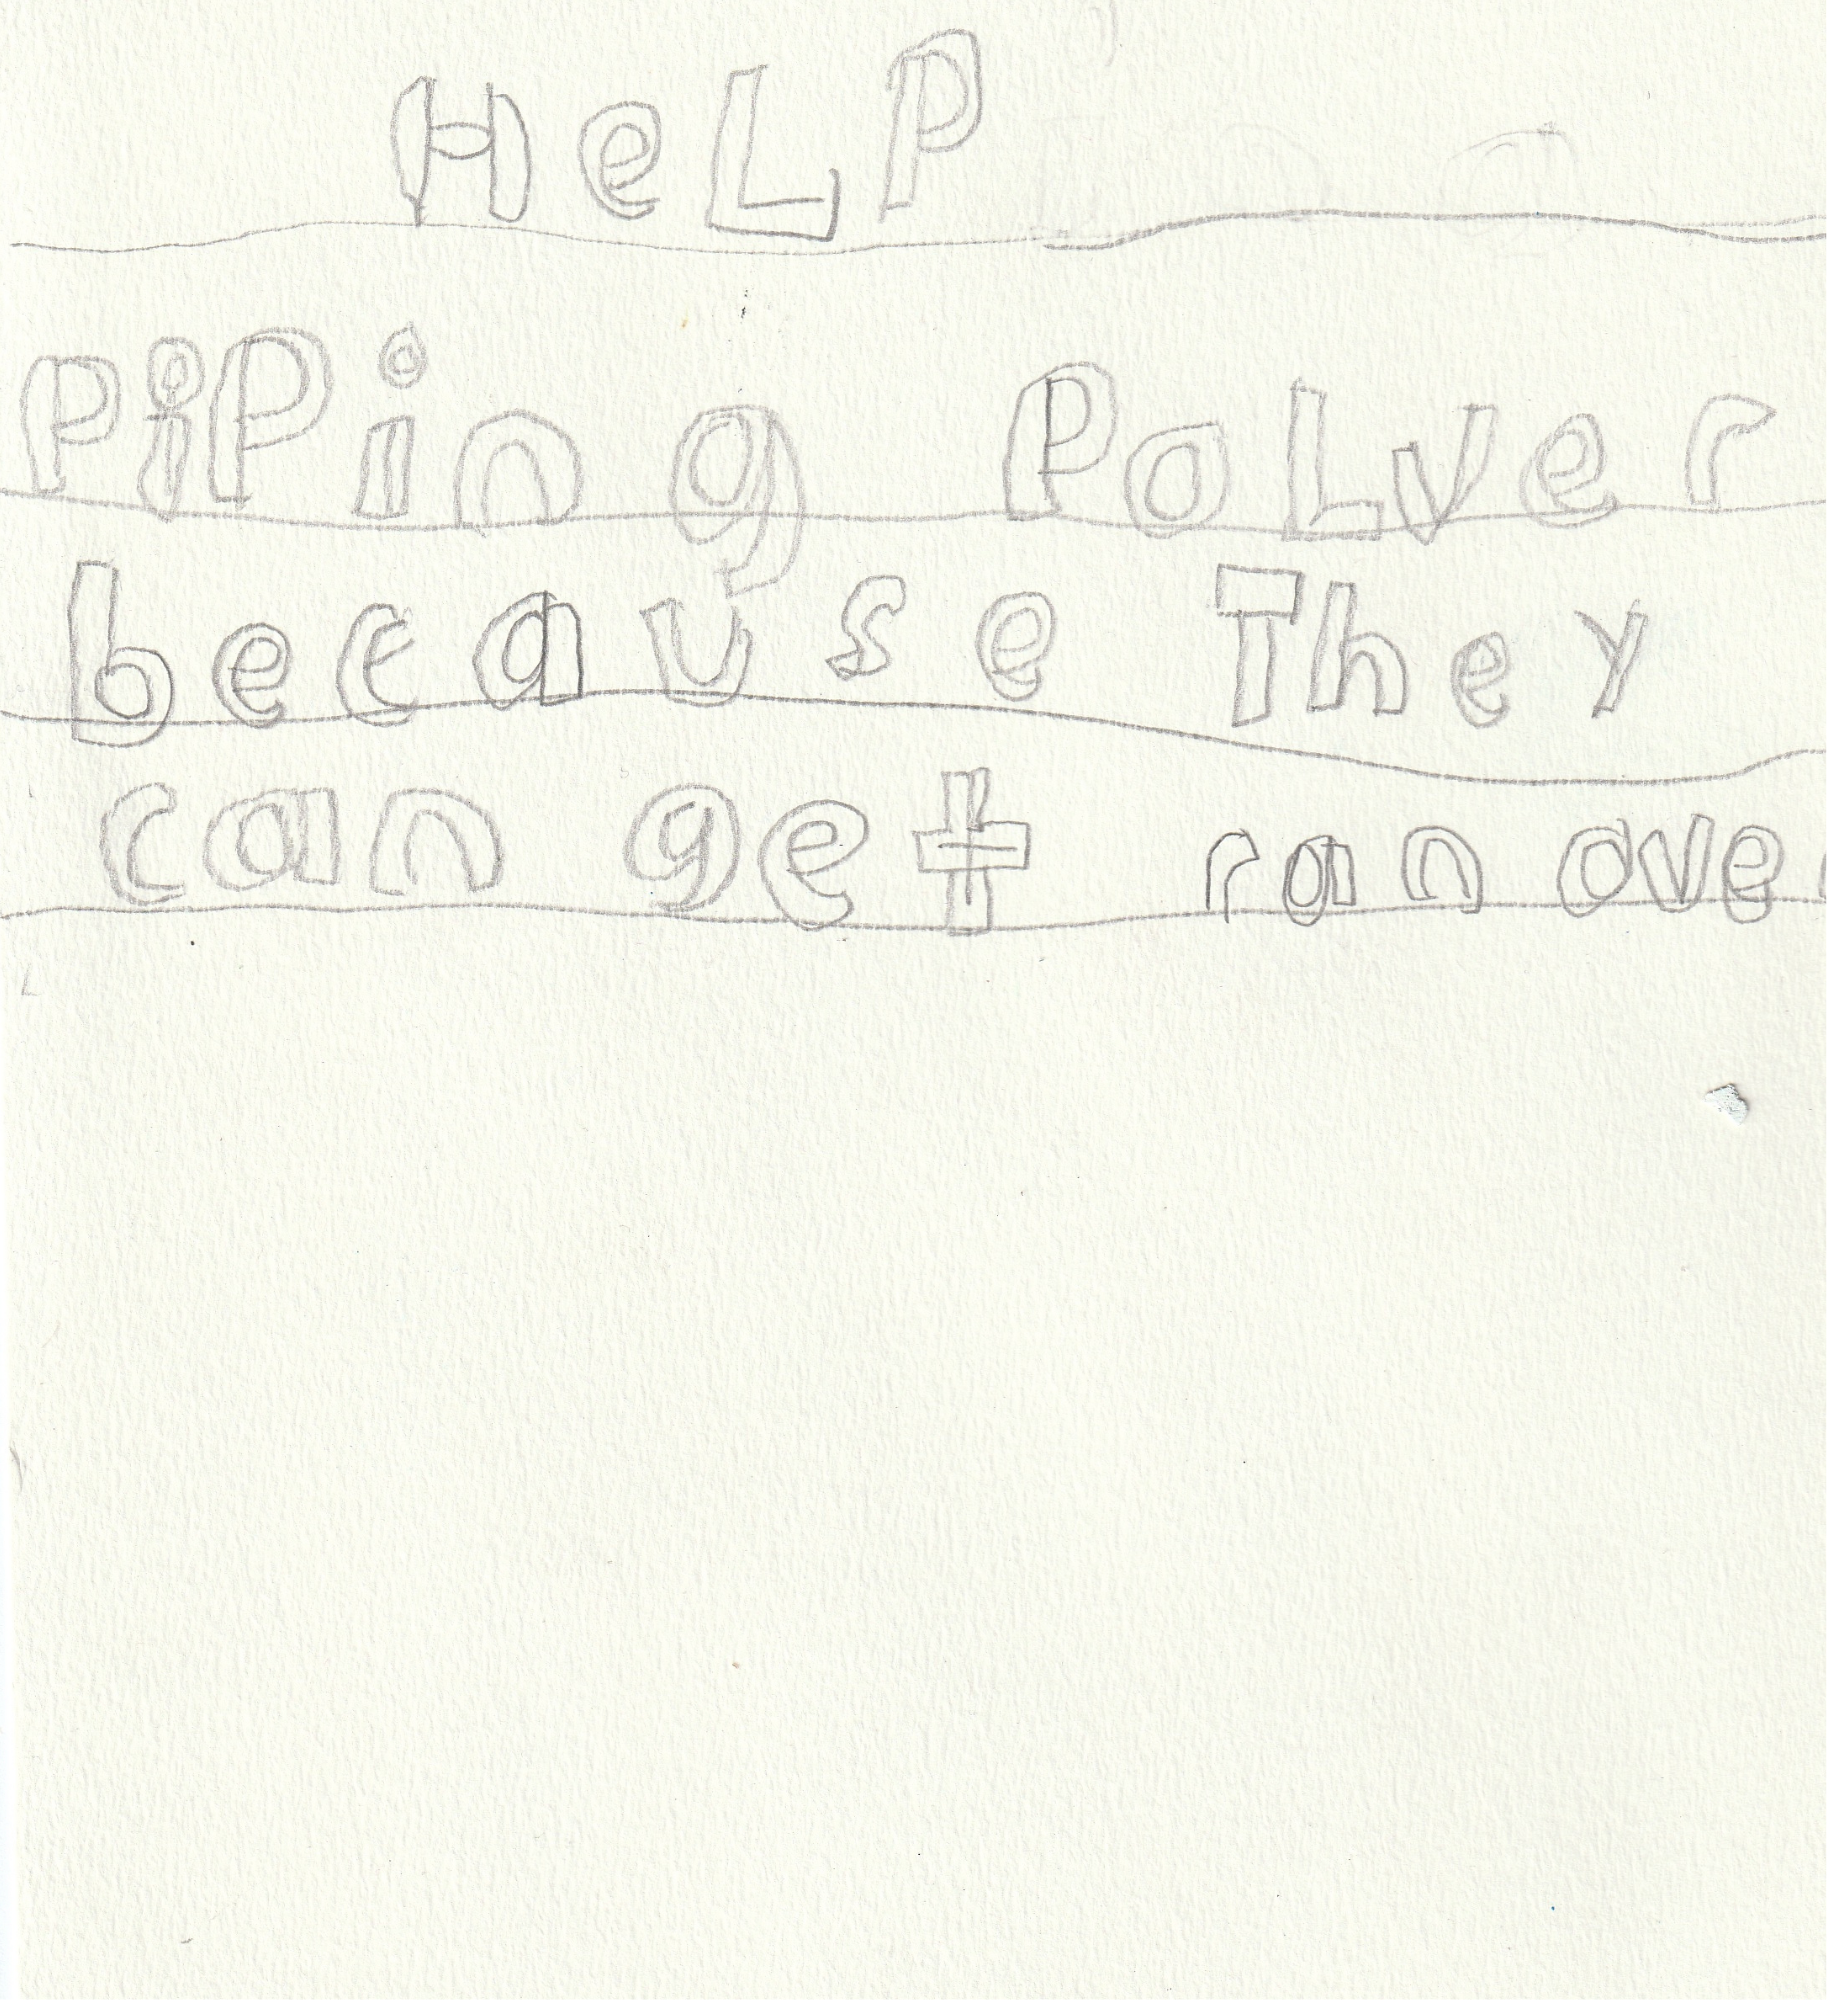 HeLP
PiPing PoLver
because They
can get ran over